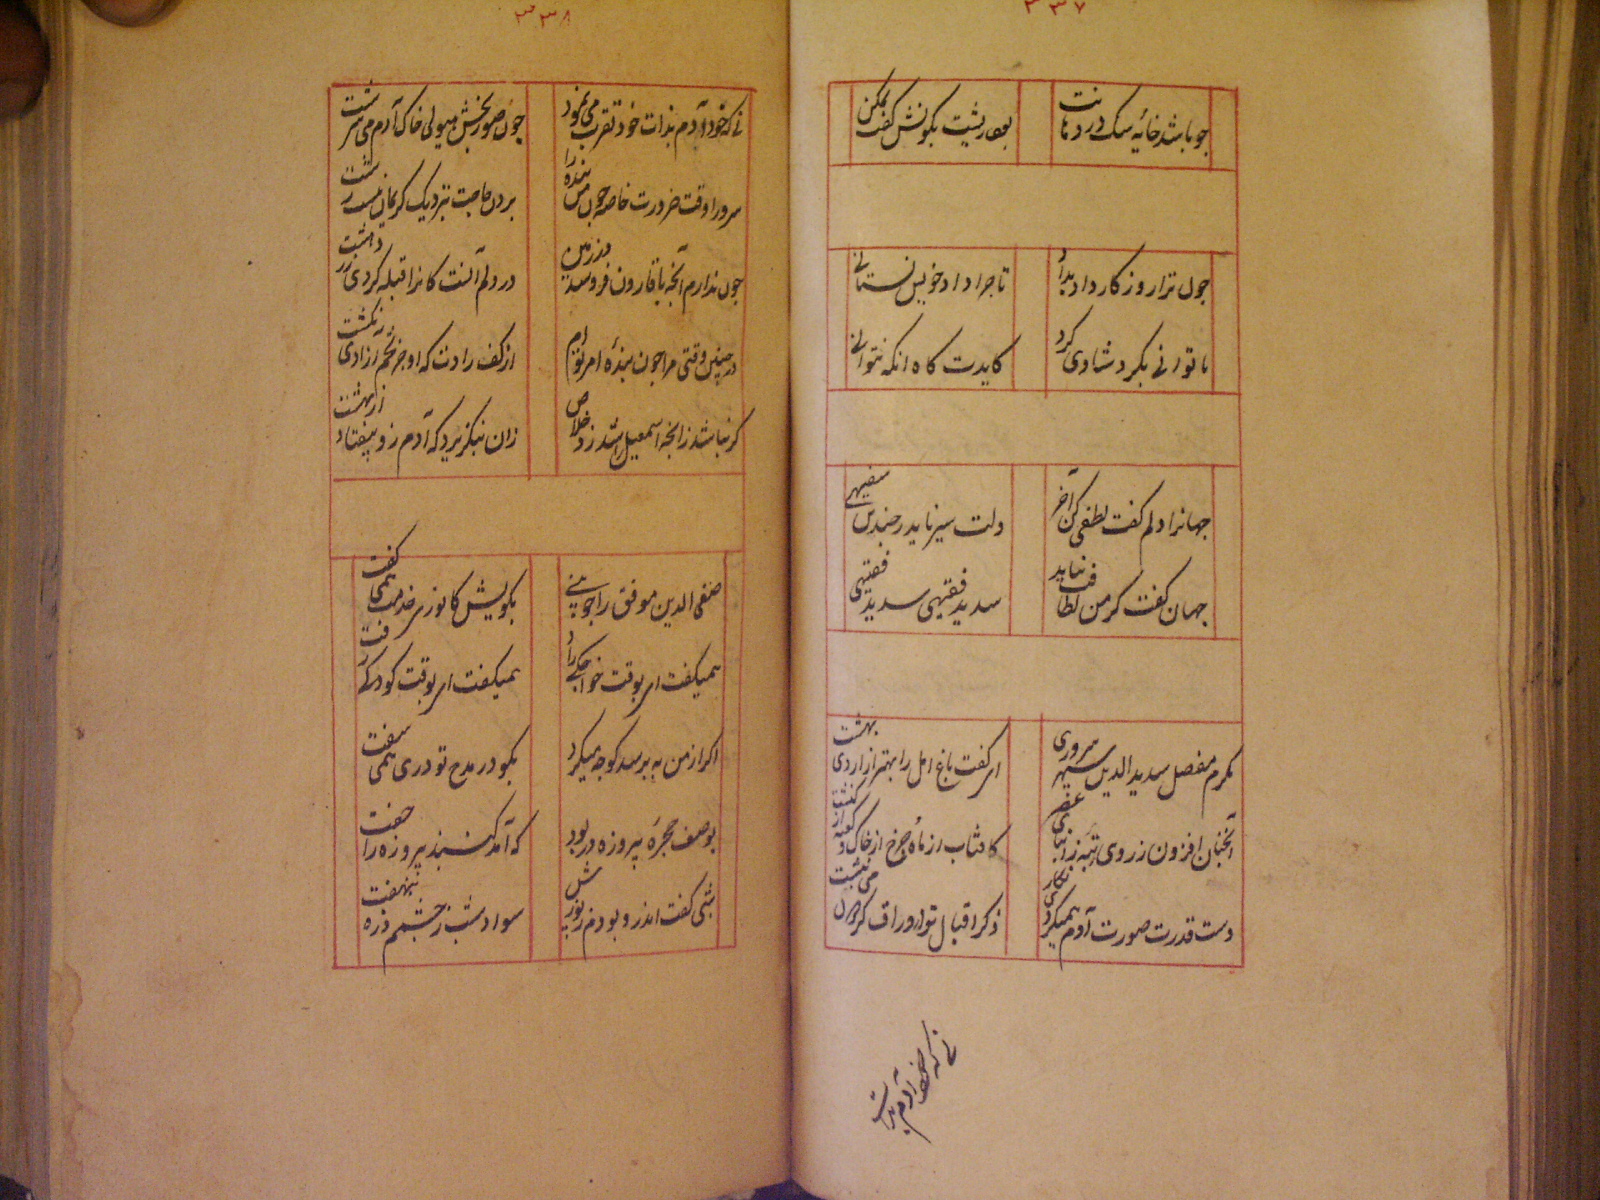 ۳۳۷
جو باشد خانه سک در دهانت
بکوئش کفت
چون ترا روزکار داد بداد
تا جرا داد خویش نستانی
با توانی بکرد شادی کرد
کایدت کاه انکه نتوانی
جهانرا دلم کفت لطفی کن آخر
دلت سیر ناید ز جندین سفیهی
جهان کفت کر من لطافت نیاید
سدید فقیهی سدید فقیهی
مکرم مفضل سدید الدین سپهر سروری
ای کفت باغ امل را بهتر از اردی بهشت
آنچنان افزون ز روی
کافتاب از ماه چرخ از خاک و کعبه از کنشت
دست قدرت صورت آدم همیکرد
ذکر اقبال تو اوراق می نبشت
نی که خود آدم بذات
۳۳۸
نی که خود آدم بذات خود تقرب می نمود
چون صور بخش هیولی خاک آدم می سرشت
سرورا وقت ضرورت خاصه چون من بنده را
بردن حاجت بنزدیک کریمان نیست زشت
چون ندارم آنچه با قارون فرو شد در زمین
در دلم آنست کانرا قبله کردی زردهشت
در چنین وقتی مرا چون بنده امر توام
از کف رادت که او جز تخم آزادی نکشت
کر نباشد زانچه اسمعیل را شد زو خلاص
زان نبکزیرد که آدم زو بیفتاد از بهشت
صفی الدین موفق را چو بینی
بکویش کانوری خدمت همی کفت
همیکفت ای بوقت خواجکی راد
همیکفت ای بوقت کودکی
اکر از من بپرسد کو چه میکرد
بکو در مدح تو دری همی سفت
بوصف حجرۀ پیروزه در بود
که آمد کنبذ پیروزه را جفت
شبی کفت اندرو بودم ز نورش
سواد شب ز چشم ذره بنهفت